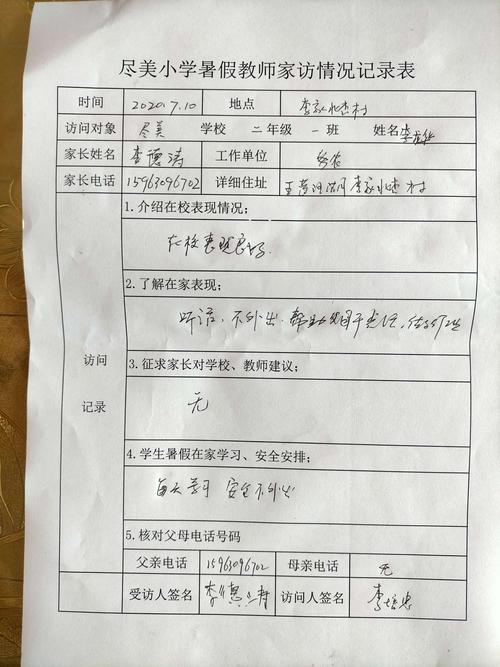 尽美小学暑假教师家访情况记录表
时间 2020.7.10 地点 李家北杏村
访问对象 尽美 学校 二年级 一班 姓名 李
家长姓名 李德涛 工作单位 务农
家长电话 15963096702 详细住址 李家北杏村
1.介绍在校表现情况：
在校表现良好.
2.了解在家表现：
听话，不外出，帮助父母干农活，
访问
记录
3.征求家长对学校、教师建议；
无
4.学生暑假在家学习、安全安排；
每天学习 安全不外出
5.核对父母电话号码
父亲电话 15963096702 母亲电话 无
受访人签名 李德涛 访问人签名 李